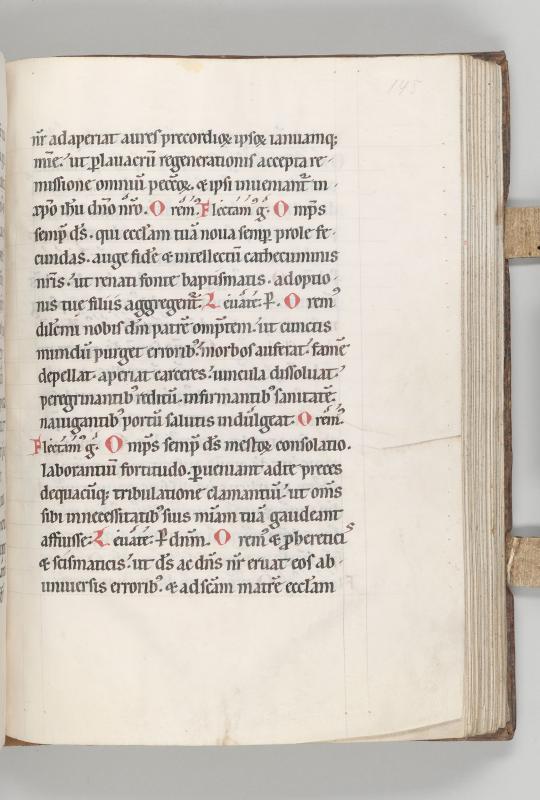 145
nr̄ adaperiat aures precordioꝝ ipsoꝝ ianuamq;
mīe. ut ꝑ lauacrū regenerationis accepta re-
missione omniū peccōꝝ. & ipsi inueniant̄ in
xp̄o ih̄u dn̄o nr̄o. Orem̄. Flectam̄ ḡ. Omp̄s
semp̄ ds̄. qui eccl̄am tuā noua semꝑ prole fe-
cundas. auge fidē & intellectū cathecuminis
nr̄is. ut renati fonte baptismatis. adoptio-
nis tue filiis aggregent̄. Leuāte. P̄. Orem̄
dilc̄mi nobis dm̄ patrē omp̄tem. ut cunctis
mundū purget errorib; morbos auferat. famē
depellat. aperiat carceres. uincula dissoluat.
peregrinantib; reditū. infirmantib; sanitatē.
nauigantib; portū salutis indulgeat. Orem̄.
Flectam̄ ḡ. Omp̄s semp̄ ds̄ mestoꝝ consolatio.
laborantiū fortitudo. ꝑueniant adte preces
dequacūq; tribulatione clamantiū. ut om̄s
sibi innecessitatib; suis mīam tuā gaudeant
affuisse. Leuāte. P̄ dnm̄. Orem̄ & ꝓ hereticis
& scismaticis. ut ds̄ ac dn̄s nr̄ eruat eos ab-
uniuersis errorib;. & ad scām matrē eccl̄am